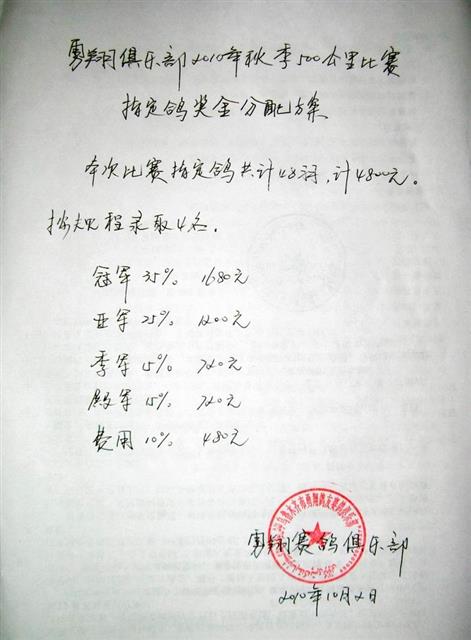 勇翔俱乐部2010年秋季500公里比赛
指定鸽奖金分配方案
本次比赛指定鸽共计48羽，计4800元。
按规程录取4名。
冠军 35% 1680元
亚军 25% 1200元
季军 15% 720元
殿军 15% 720元
费用 10% 480元
勇翔赛鸽俱乐部
2010年10月2日